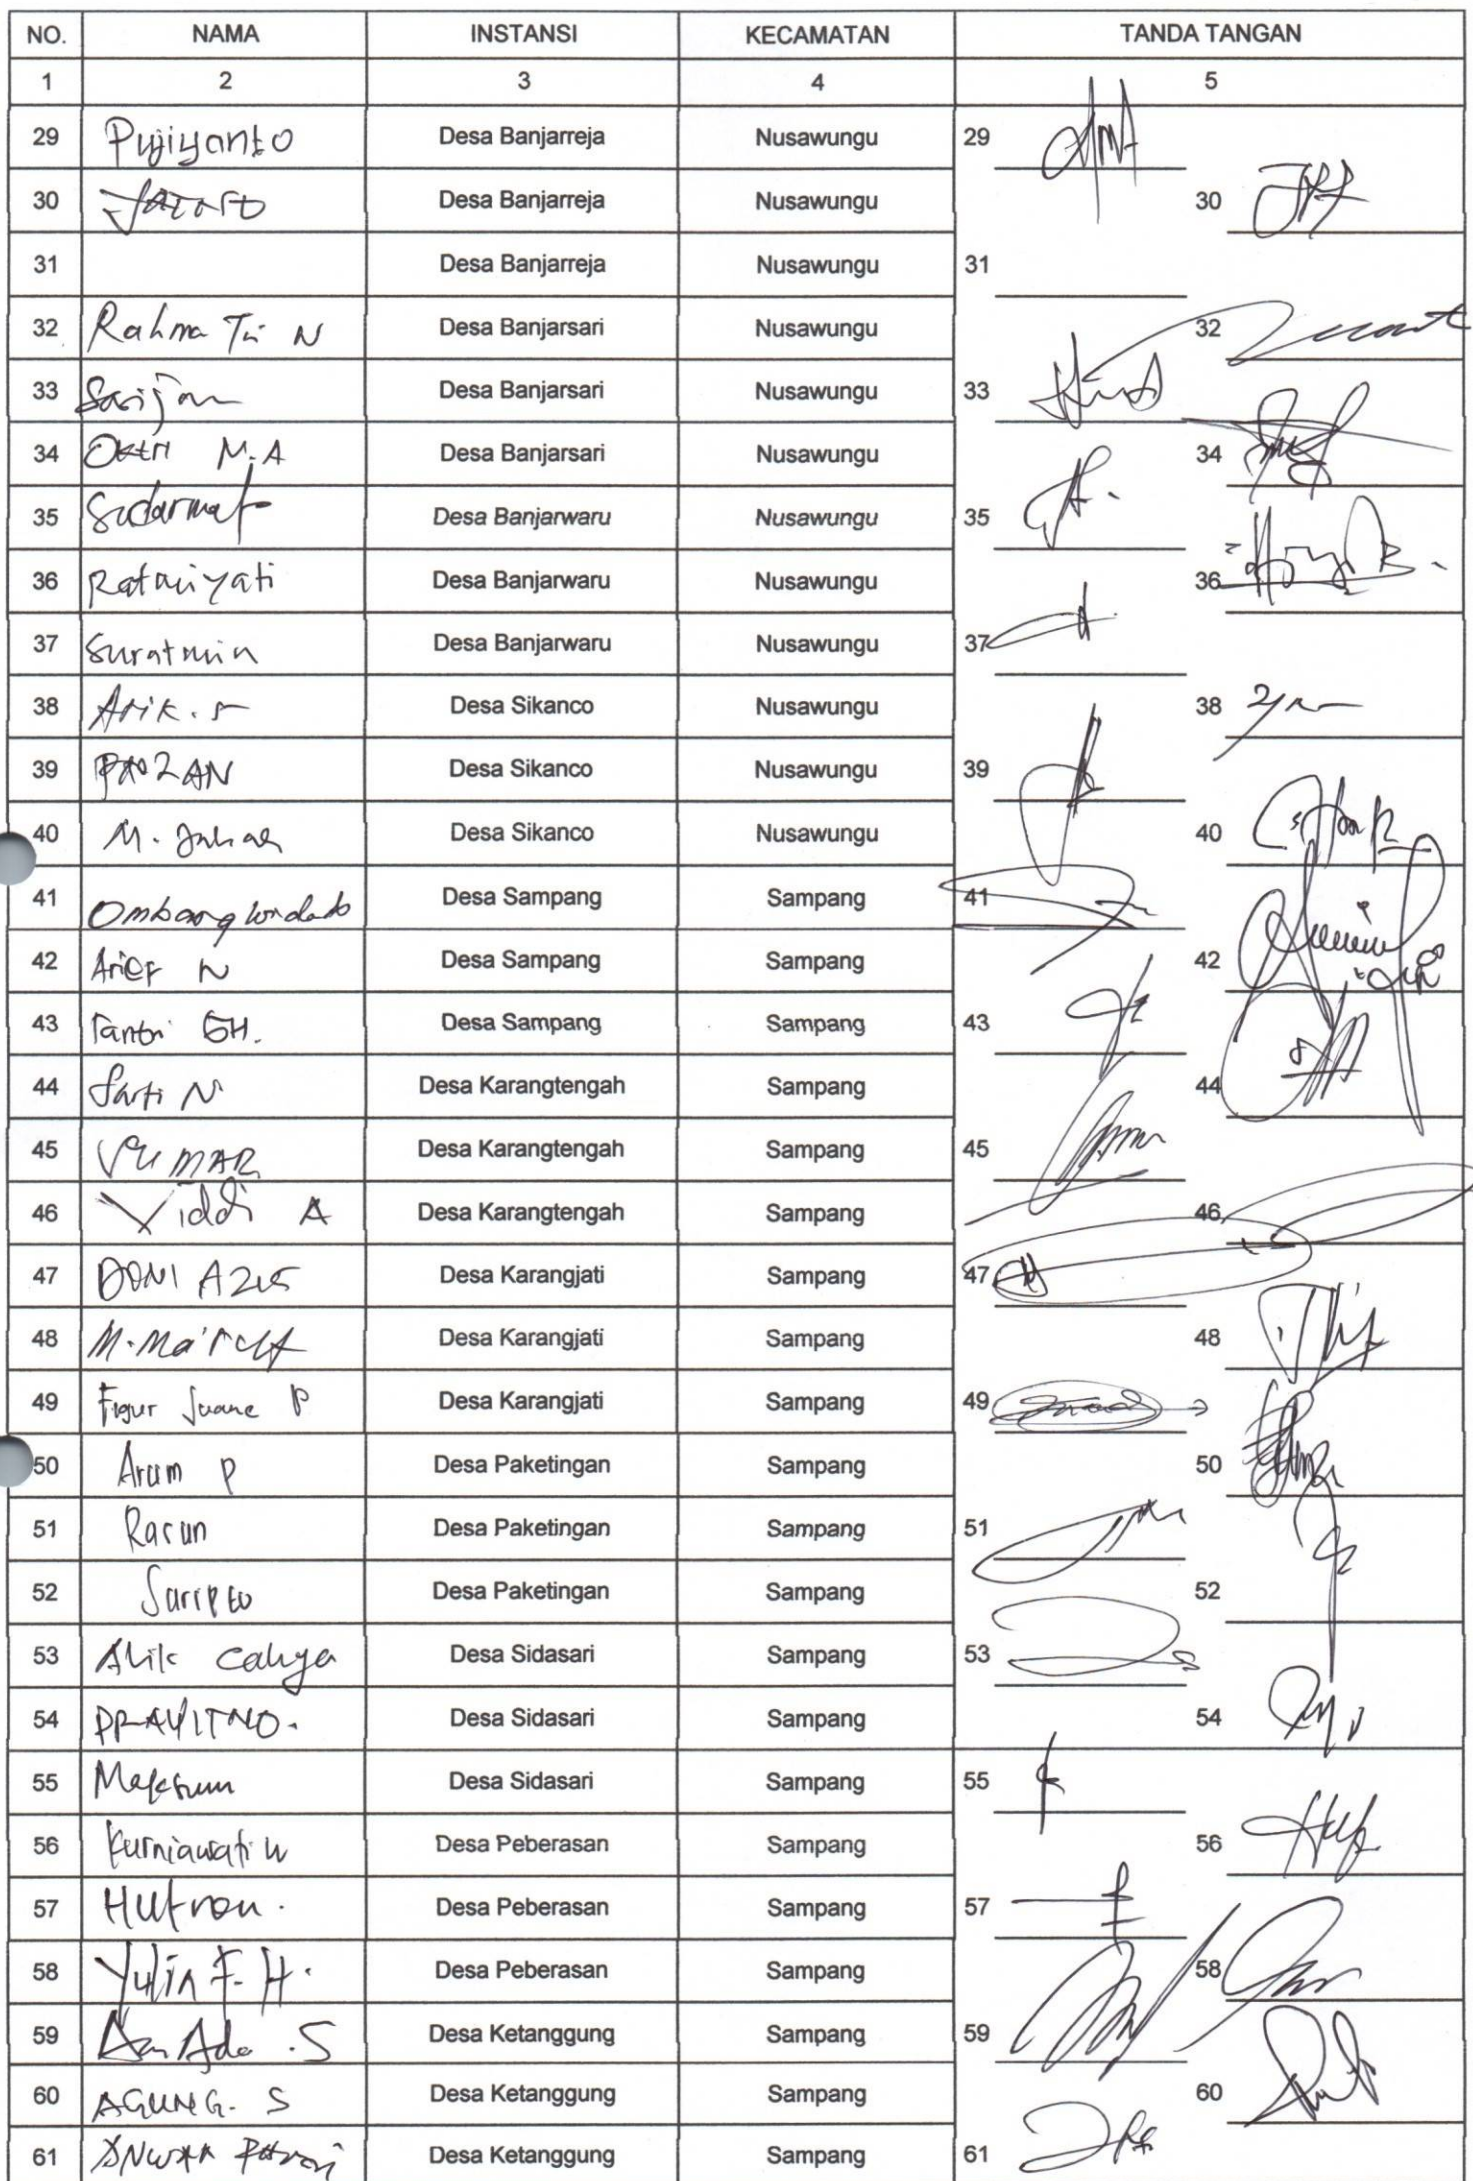 NO. NAMA INSTANSI KECAMATAN TANDA TANGAN
1 2 3 4 5
29 Pujiyanto Desa Banjarreja Nusawungu 29
30 Desa Banjarreja Nusawungu 30
31 Desa Banjarreja Nusawungu 31
32 Rahma Tri N Desa Banjarsari Nusawungu 32
33 Sarijan Desa Banjarsari Nusawungu 33
34 M.A Desa Banjarsari Nusawungu 34
35 Sudarmat Desa Banjarwaru Nusawungu 35
36 Ratmiyati Desa Banjarwaru Nusawungu 36
37 Suratmin Desa Banjarwaru Nusawungu 37
38 Arik. S Desa Sikanco Nusawungu 38
39 Desa Sikanco Nusawungu 39
40 M. Desa Sikanco Nusawungu 40
41 Ombang Desa Sampang Sampang 41
42 Arief N Desa Sampang Sampang 42
43 Tantri GH. Desa Sampang Sampang 43
44 Sarti N Desa Karangtengah Sampang 44
45 Desa Karangtengah Sampang 45
46 Yiddi A Desa Karangtengah Sampang 46
47 DONI AZIS Desa Karangjati Sampang 47
48 M. Ma'ruf Desa Karangjati Sampang 48
49 Figur Juane P Desa Karangjati Sampang 49
50 Arum P Desa Paketingan Sampang 50
51 Rasun Desa Paketingan Sampang 51
52 Saripto Desa Paketingan Sampang 52
53 Cahya Desa Sidasari Sampang 53
54 PRAYITNO. Desa Sidasari Sampang 54
55 Maksum Desa Sidasari Sampang 55
56 Kurniawati W Desa Peberasan Sampang 56
57 Hufron. Desa Peberasan Sampang 57
58 Yulin F. H. Desa Peberasan Sampang 58
59 S Desa Ketanggung Sampang 59
60 AGUNG. S Desa Ketanggung Sampang 60
61 ANWAR Desa Ketanggung Sampang 61